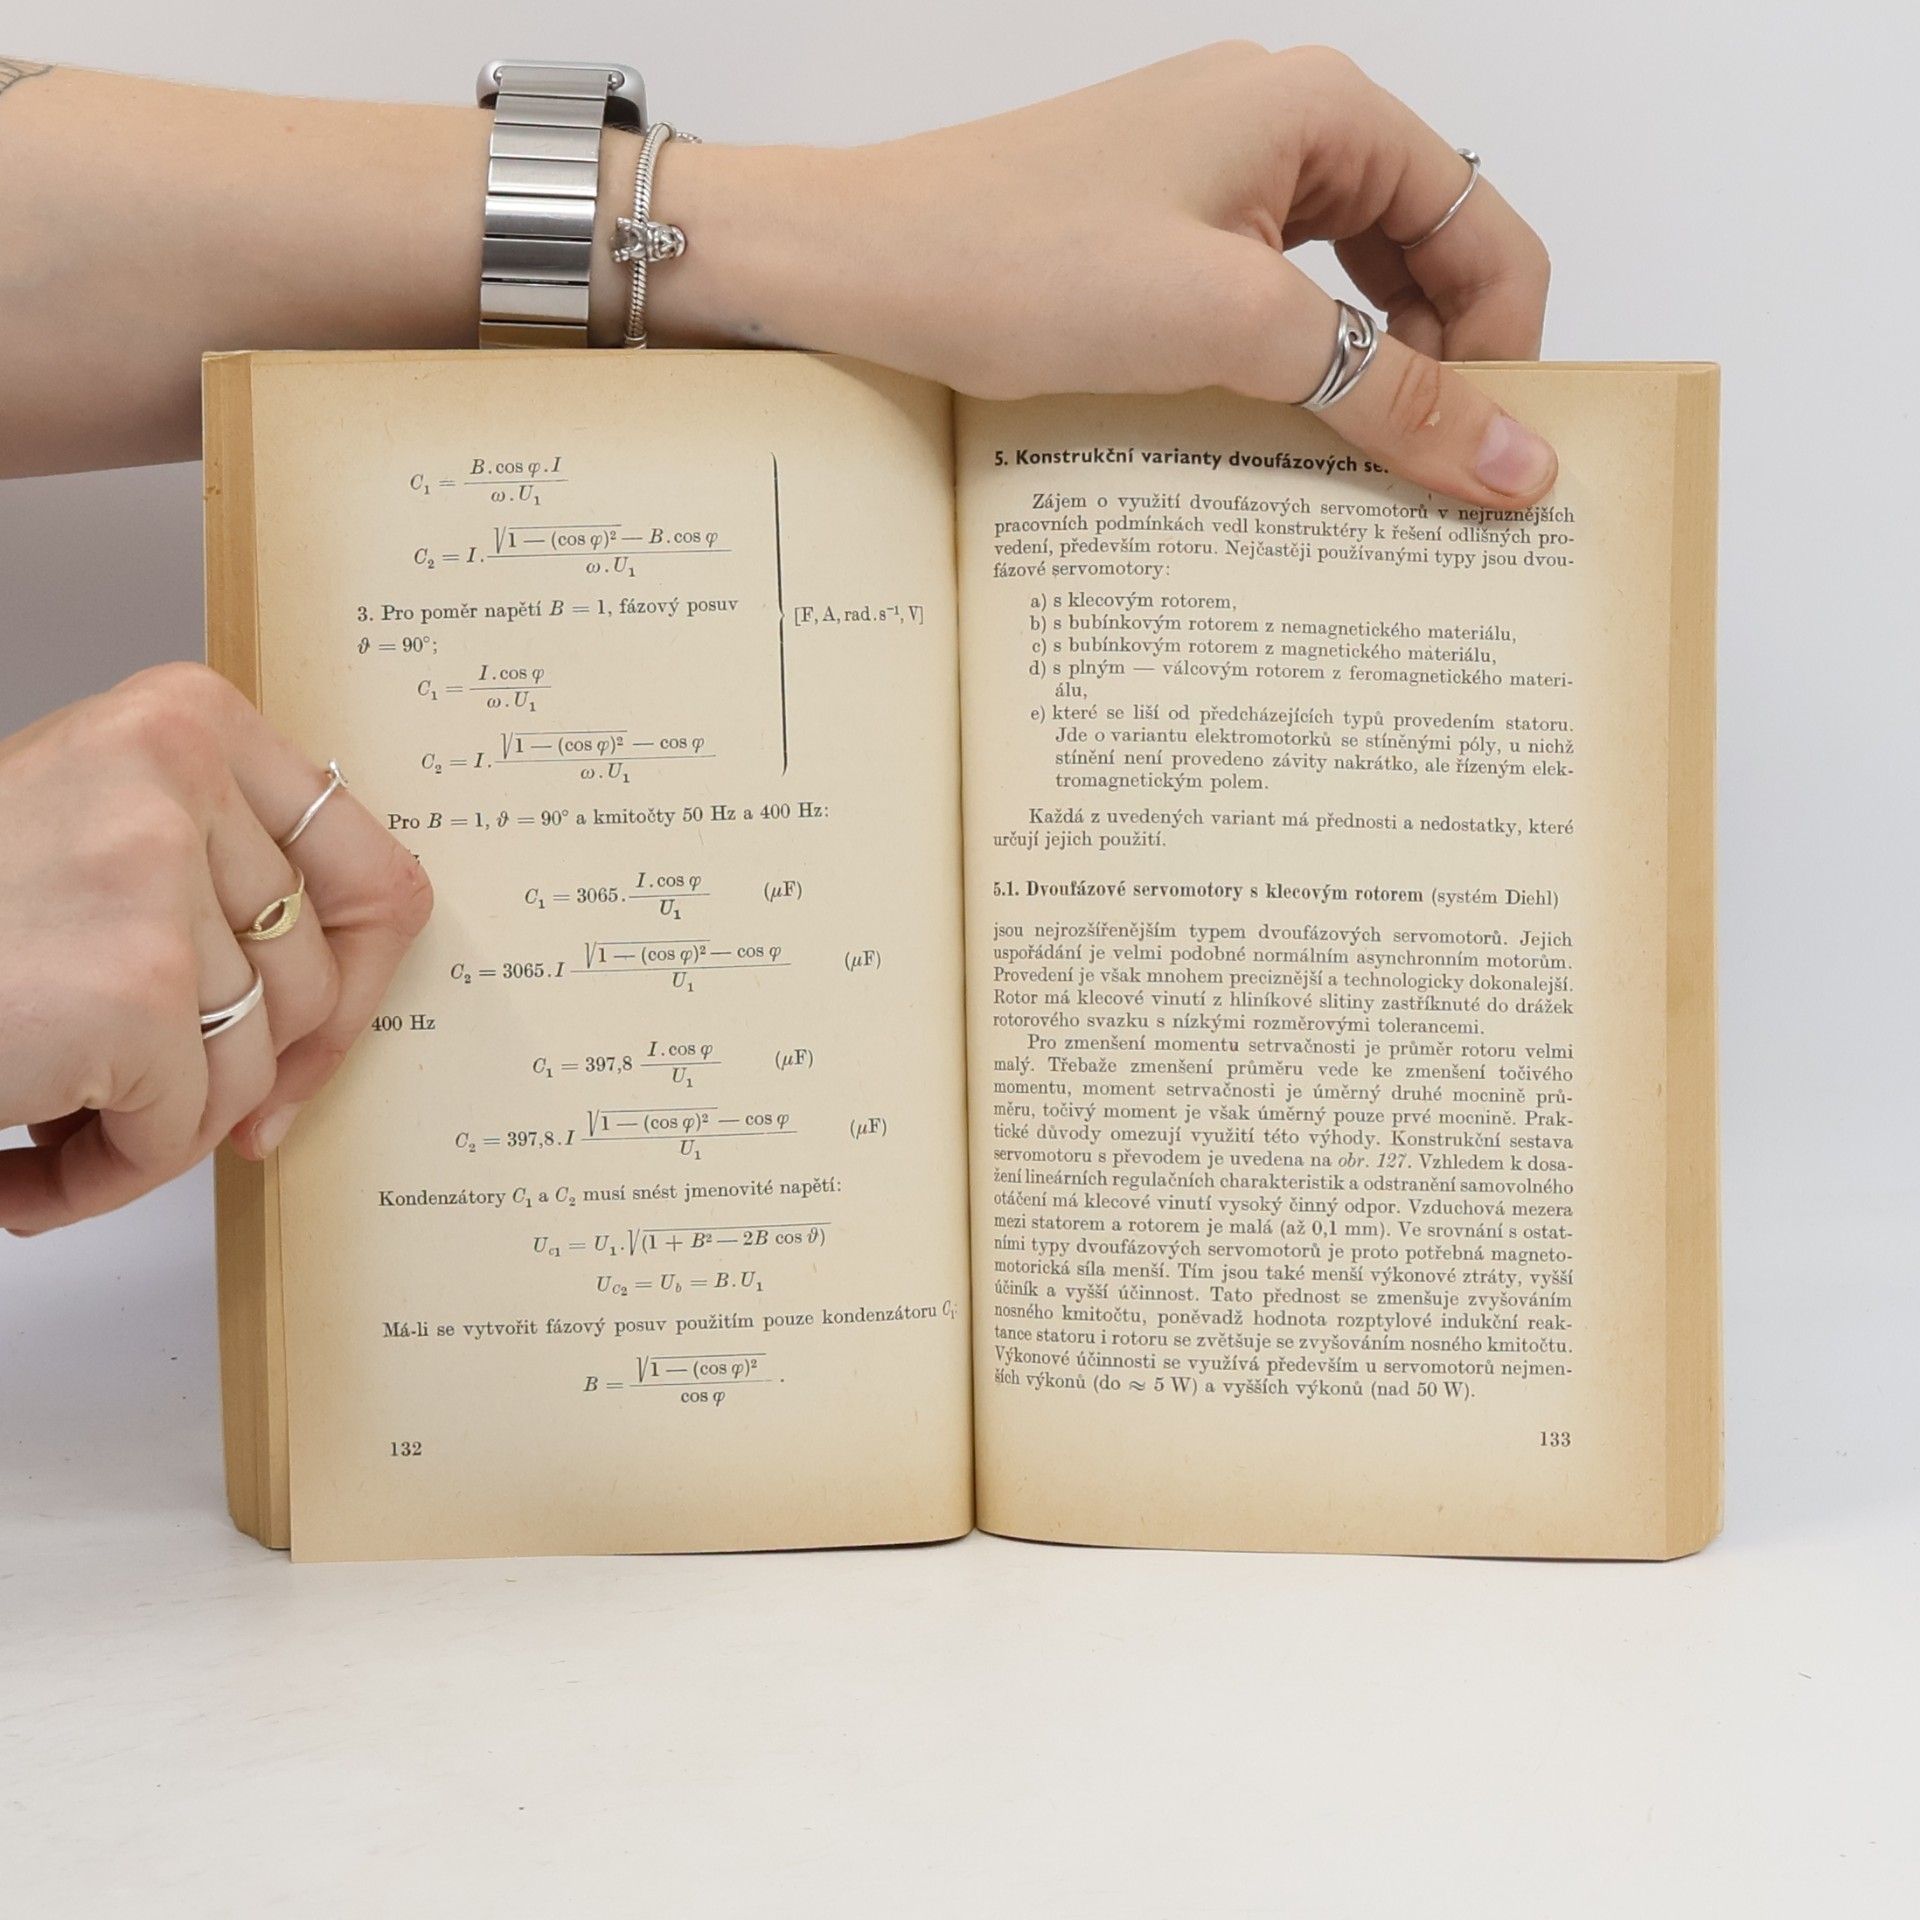 C₁ = B.cos φ.I / ω.U₁
C₂ = I. √1 — (cos φ)² — B.cos φ / ω.U₁
3. Pro poměr napětí B = 1, fázový posuv
[F, A, rad.s⁻¹, V]
ϑ = 90°;
C₁ = I.cos φ / ω.U₁
C₂ = I. √1 — (cos φ)² — cos φ / ω.U₁
Pro B = 1, ϑ = 90° a kmitočty 50 Hz a 400 Hz:
C₁ = 3065. I.cos φ / U₁ (μF)
C₂ = 3065.I √1 — (cos φ)² — cos φ / U₁ (μF)
400 Hz
C₁ = 397,8 I.cos φ / U₁ (μF)
C₂ = 397,8.I √1 — (cos φ)² — cos φ / U₁ (μF)
Kondenzátory C₁ a C₂ musí snést jmenovité napětí:
U_c1 = U₁.√(1 + B² — 2B cos ϑ)
U_C2 = U_b = B.U₁
Má-li se vytvořit fázový posuv použitím pouze kondenzátoru C₁:
B = √1 — (cos φ)² / cos φ .
132
5. Konstrukční varianty dvoufázových
Zájem o využití dvoufázových servomotorů v nejrůznějších
pracovních podmínkách vedl konstruktéry k řešení odlišných pro-
vedení, především rotoru. Nejčastěji používanými typy jsou dvou-
fázové servomotory:
a) s klecovým rotorem,
b) s bubínkovým rotorem z nemagnetického materiálu,
c) s bubínkovým rotorem z magnetického materiálu,
d) s plným — válcovým rotorem z feromagnetického materi-
álu,
e) které se liší od předcházejících typů provedením statoru.
Jde o variantu elektromotorků se stíněnými póly, u nichž
stínění není provedeno závity nakrátko, ale řízeným elek-
tromagnetickým polem.
Každá z uvedených variant má přednosti a nedostatky, které
určují jejich použití.
5.1. Dvoufázové servomotory s klecovým rotorem (systém Diehl)
jsou nejrozšířenějším typem dvoufázových servomotorů. Jejich
uspořádání je velmi podobné normálním asynchronním motorům.
Provedení je však mnohem preciznější a technologicky dokonalejší.
Rotor má klecové vinutí z hliníkové slitiny zastříknuté do drážek
rotorového svazku s nízkými rozměrovými tolerancemi.
Pro zmenšení momentu setrvačnosti je průměr rotoru velmi
malý. Třebaže zmenšení průměru vede ke zmenšení točivého
momentu, moment setrvačnosti je úměrný druhé mocnině prů-
měru, točivý moment je však úměrný pouze prvé mocnině. Prak-
tické důvody omezují využití této výhody. Konstrukční sestava
servomotoru s převodem je uvedena na obr. 127. Vzhledem k dosa-
žení lineárních regulačních charakteristik a odstranění samovolného
otáčení má klecové vinutí vysoký činný odpor. Vzduchová mezera
mezi statorem a rotorem je malá (až 0,1 mm). Ve srovnání s ostat-
ními typy dvoufázových servomotorů je proto potřebná magneto-
motorická síla menší. Tím jsou také menší výkonové ztráty, vyšší
účiník a vyšší účinnost. Tato přednost se zmenšuje zvyšováním
nosného kmitočtu, poněvadž hodnota rozptylové indukční reak-
tance statoru i rotoru se zvětšuje se zvyšováním nosného kmitočtu.
Výkonové účinnosti se využívá především u servomotorů nejmen-
ších výkonů (do ≈ 5 W) a vyšších výkonů (nad 50 W).
133